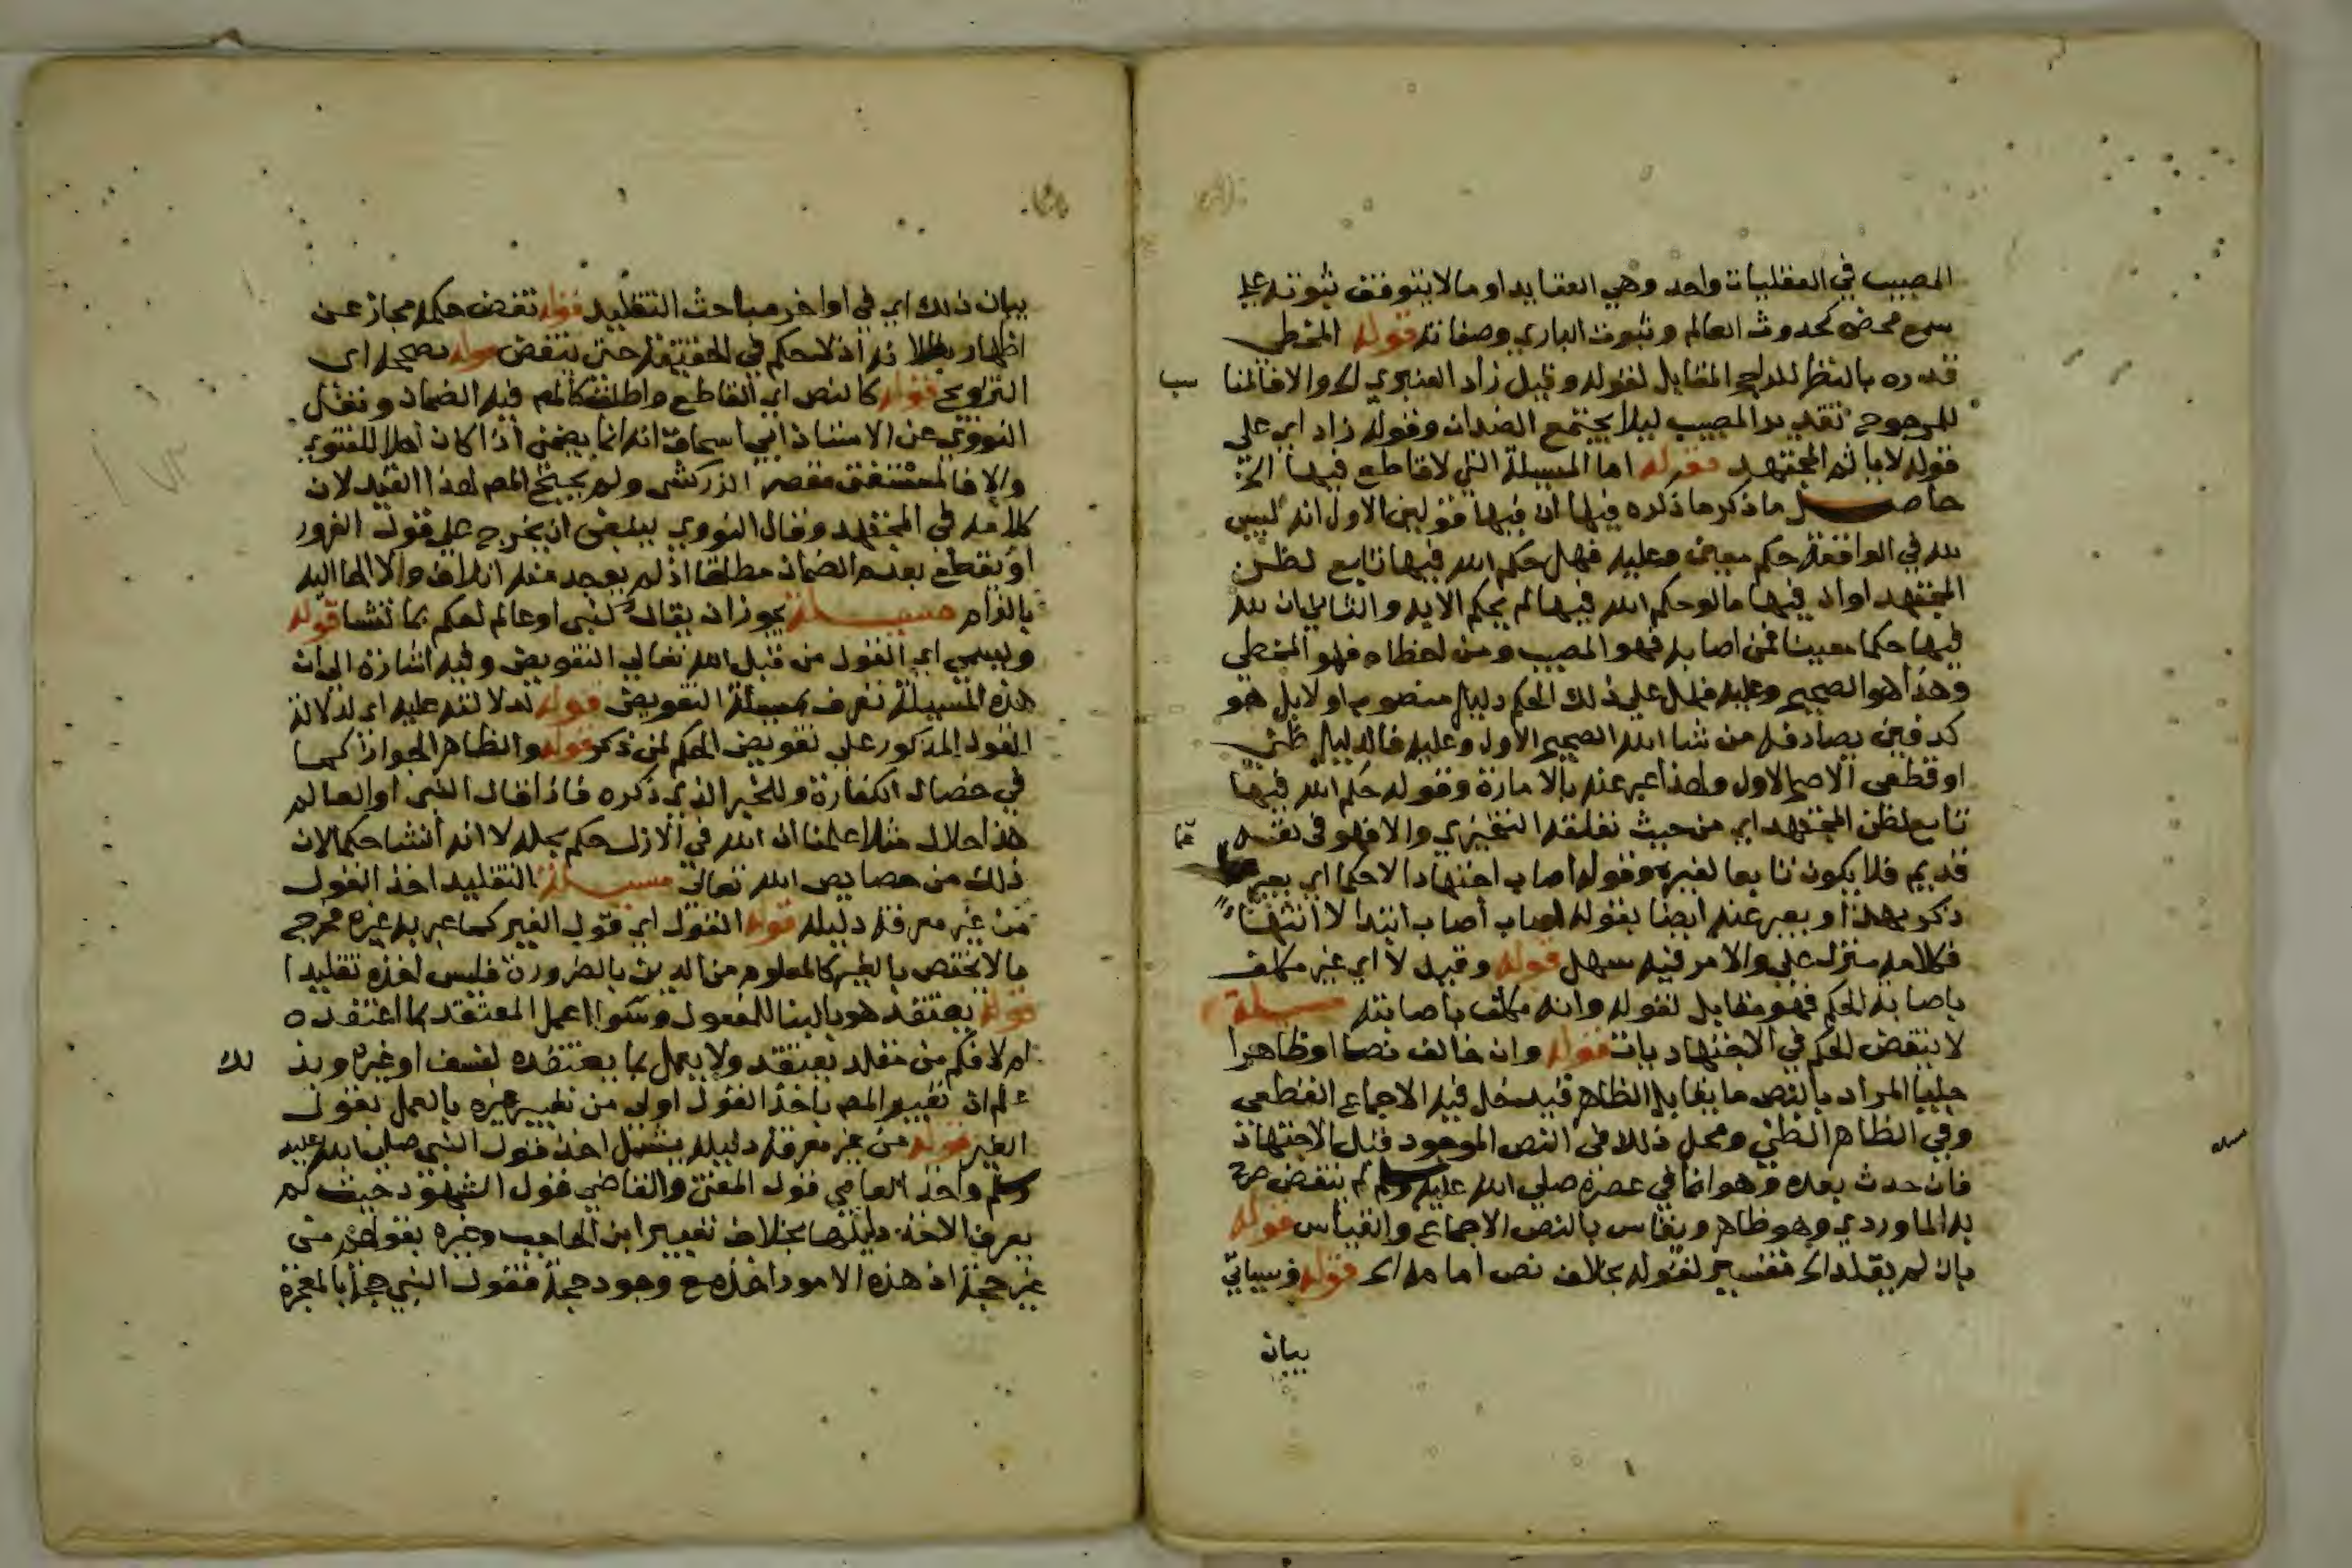 المصيب في العقليات واحد وهي العقايد او ما لا يتوقف ثبوته علي
سمع محض كحدوث العالم وثبوت الباري وصفاته قوله المخطي
قدره بالنظر للراجح المقابل لقوله وقيل زاد العنبري الخ والا فالمنا
سب
للمرجوح تقدير المصيب ليلا يجتمع الضدان وقوله زاد اي علي
قوله لا ياثم المجتهد قوله اما المسيلة التي لا قاطع فيها الخ
حاصل ما ذكر ما ذكره فيها ان فيها قولين الاول انه ليس
لله في الواقعة حكم معين وعليه فهل حكم الله فيها تابع لظن
المجتهد او ان فيها ما لو حكم الله فيها لم يحكم الا به والثاني ان لله
فيها حكما معينا فمن اصابه فهو المصيب ومن اخطاه فهو المخطي
وهذا هو الصحيح وعليه فهل علي ذلك الحكم دليل منصوب او لا بل هو
كدفين يصادفه من شا الله الصحيح الاول وعليه فالدليل ظني
او قطعي الاصح الاول ولهذا عبر عنه بالامارة وقوله حكم الله فيها
تابع لظن المجتهد اي من حيث تعلقه التنجيزي والا فهو في نفسه
قديم فلا يكون تابعا لغيره وقوله اصاب اجتهادا لا حكما اي يعبر عما
ذكر بهذا ويعبر عنه ايضا بقوله اصاب ابتدا لا انتها
فكلامه منزل علي والامر فيه سهل قوله وقيل لا اي غير مكلف
باصابة الحكم فهو مقابل لقوله وانه مكلف باصابته مسيلة
لا ينقض الحكم في الاجتهاديات قوله وان خالف نصا او ظاهرا
جليا المراد بالنص ما يقابل الظاهر فيدخل فيه الاجماع القطعي
وفي الظاهر الظني ومحل ذلك في النص الموجود قبل الاجتهاد
فان حدث بعده وهو انما في عصره صلي الله عليه وسلم لم ينقض صرح
به الماوردي وهو ظاهر ويقاس بالنص الاجماع والقياس قوله
بان لم يقلد الخ تفسير لقوله بخلاف نص امامه الخ قوله وسياتي
بيان
بيان ذلك اي في اواخر مباحث التقليد قوله نقض حكمه مجاز عن
اظهار بطلانه اذ لا حكم في الحقيقة حتي ينقض قوله بصحة اي
التزويج قوله كالنص اي القاطع واطلق كالمص فيه الضمان ونقل
النووي عن الاستاذ ابي اسحاق انه انما يضمن اذا كان اهلا للفتوي
والا فالمستفتي مقصر الزركشي ولم يحتج المص لهذا القيد لان
كلامه في المجتهد وقال النووي ينبغي ان يخرج علي قول الغرور
او يقطع بعدم الضمان مطلقا اذ لم يوجد منه اتلاف ولا الجا اليه
بالزام مسيلة يجوز ان يقال لنبي او عالم احكم بما تشا قوله
ويسمي اي القول من قبل الله تعالي التفويض وفيه اشارة الي ان
هذه المسيلة تعرف بمسيلة التفويض قوله لدلالته عليه اي لدلالة
القول المذكور علي تفويض الحكم لمن ذكر قوله والظاهر الجواز كما
في خصال الكفارة وللخبر الذي ذكره فاذا قال النبي او العالم
هذا حلال مثلا علمنا ان الله في الازل حكم بحله لا انه انشا حكما لان
ذلك من خصايص الله تعالي مسيلة التقليد اخذ القول
من غير معرفة دليله قوله القول اي قول الغير كما عبر به غيره مخرج
ما لا يختص بالغير كالمعلوم من الدين بالضرورة فليس اخذه تقليدا
قوله يعتقد هو بالبنا للمفعول وسوا اعمل المعتقد بما اعتقده
ام لا فكم من مقلد يعتقد ولا يعمل بما يعتقده لفسق او غيره وبذ
لك
علم ان تعبير المص باخذ القول اولي من تعبير غيره بالعمل بقول
الغير قوله من غير معرفة دليله يشمل اخذ قول النبي صلي الله عليه
وسلم واخذ العامي قول المفتي والقاضي قول الشهود حيث لم
يعرف الاخذ دليلها بخلاف تعبير ابن الحاجب وغيره بقولهم من
غير حجة اذ هذه الامور اخذ مع وجود حجة فقول النبي حجة بالمعجزة